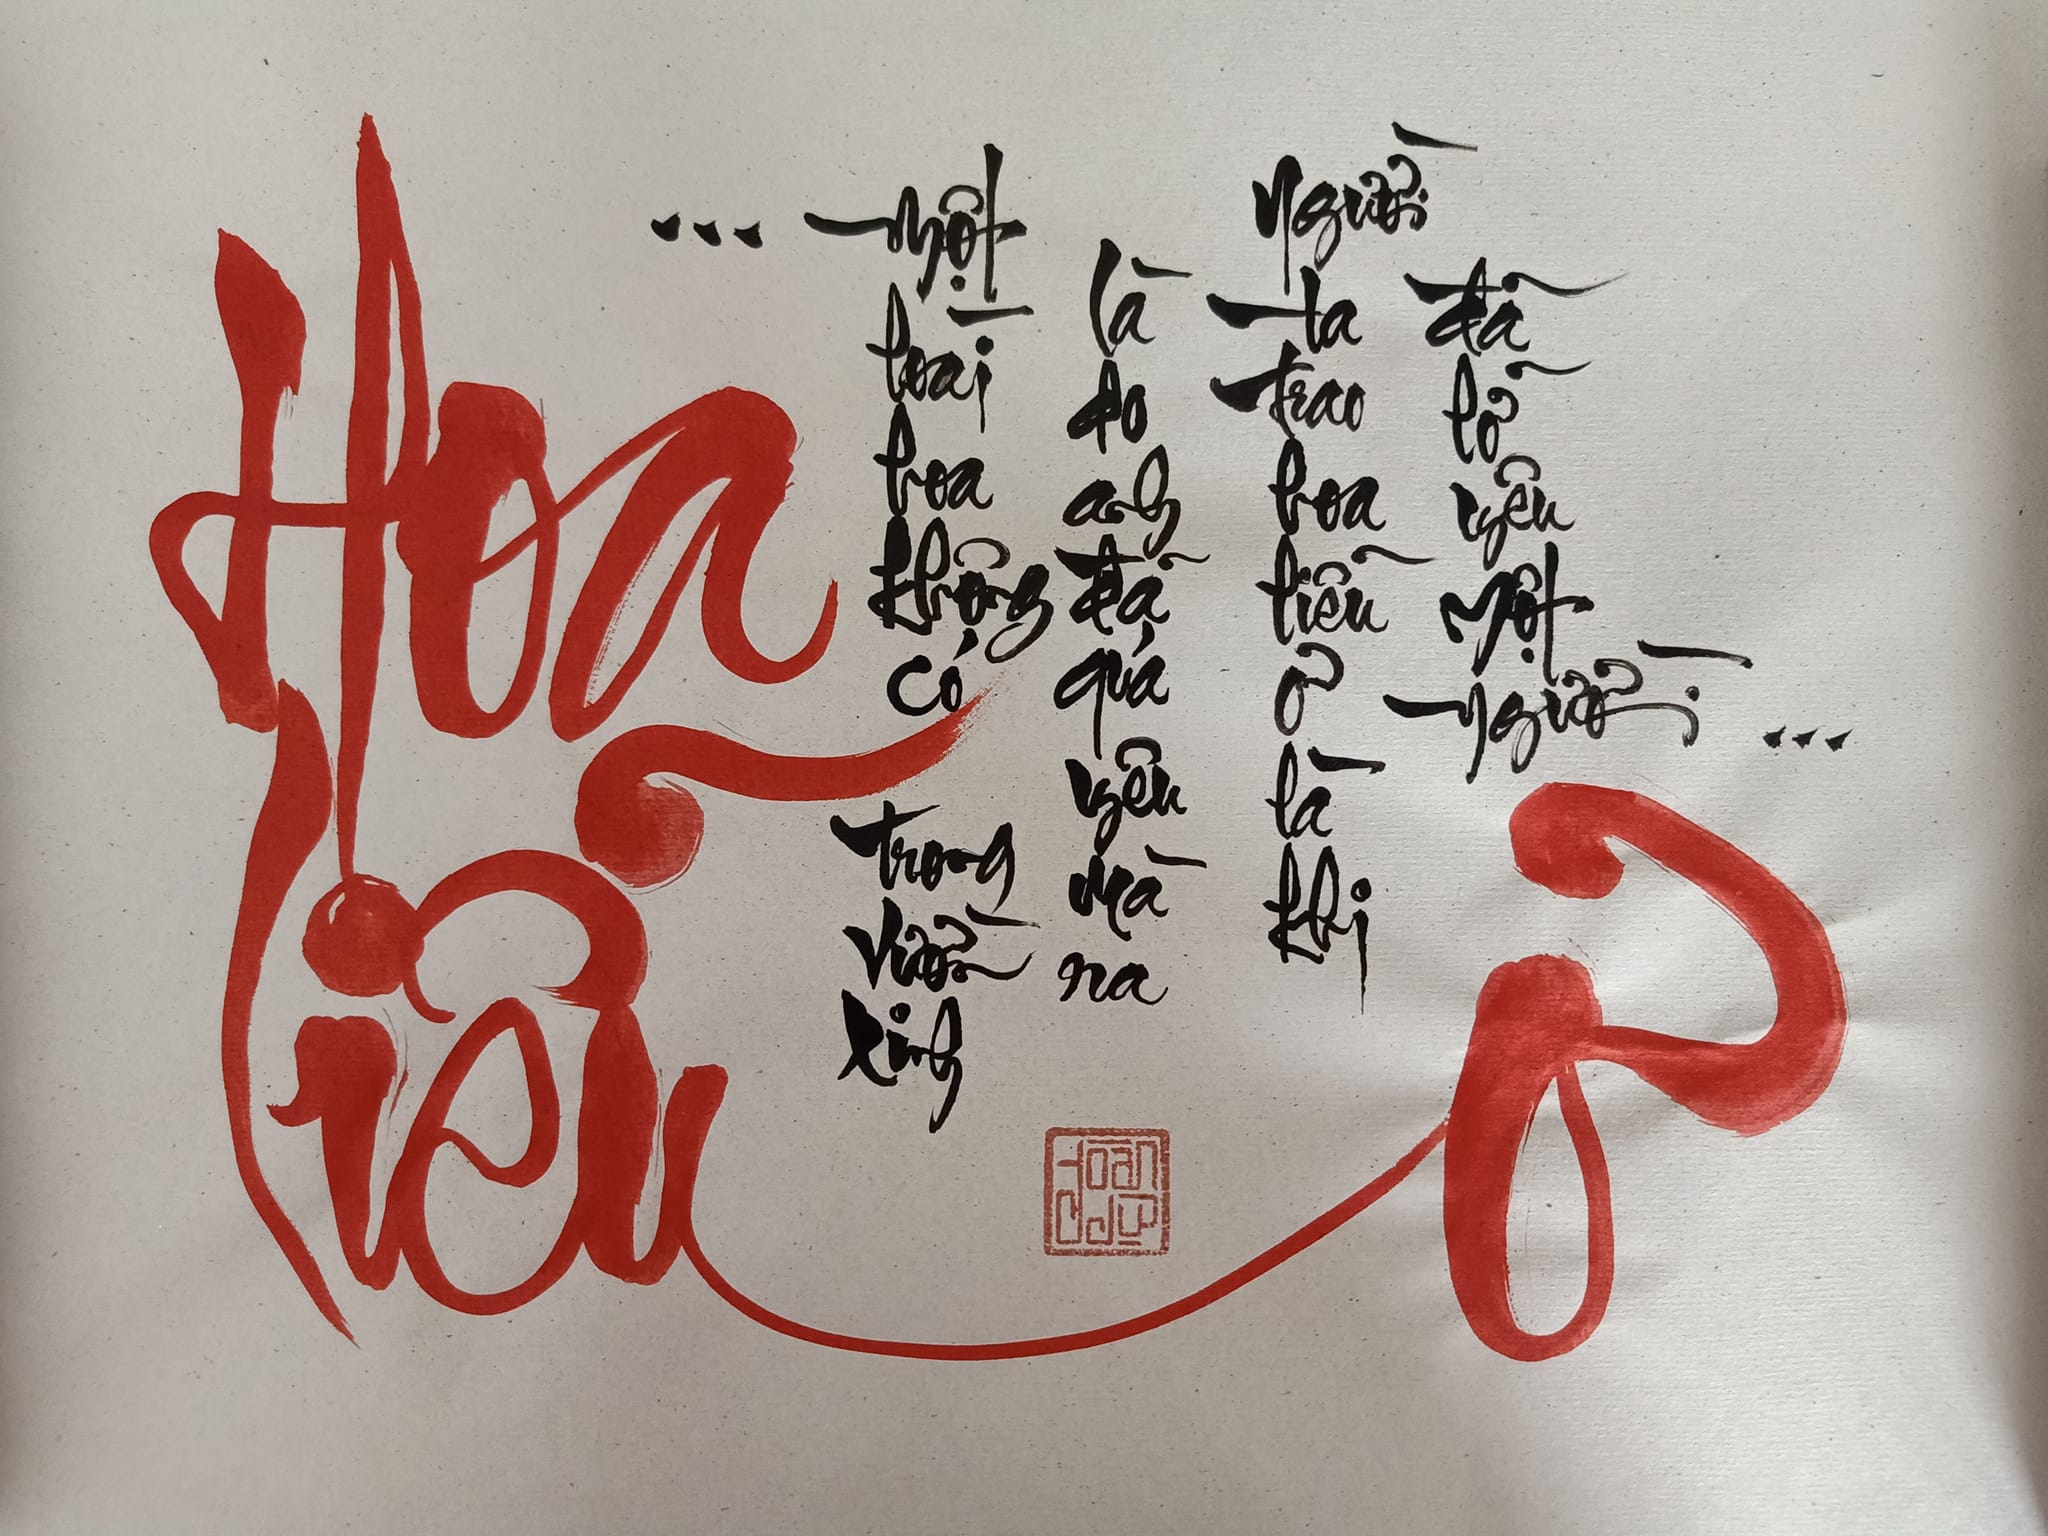 Hoa
Liễu
Ơ
... một loài hoa không có trong vườn xinh
là do anh đã quá yêu mà ra
Người ta trao hoa liễu ơ là khi
đã lỡ yêu một người ...
Hoàn
Cdư